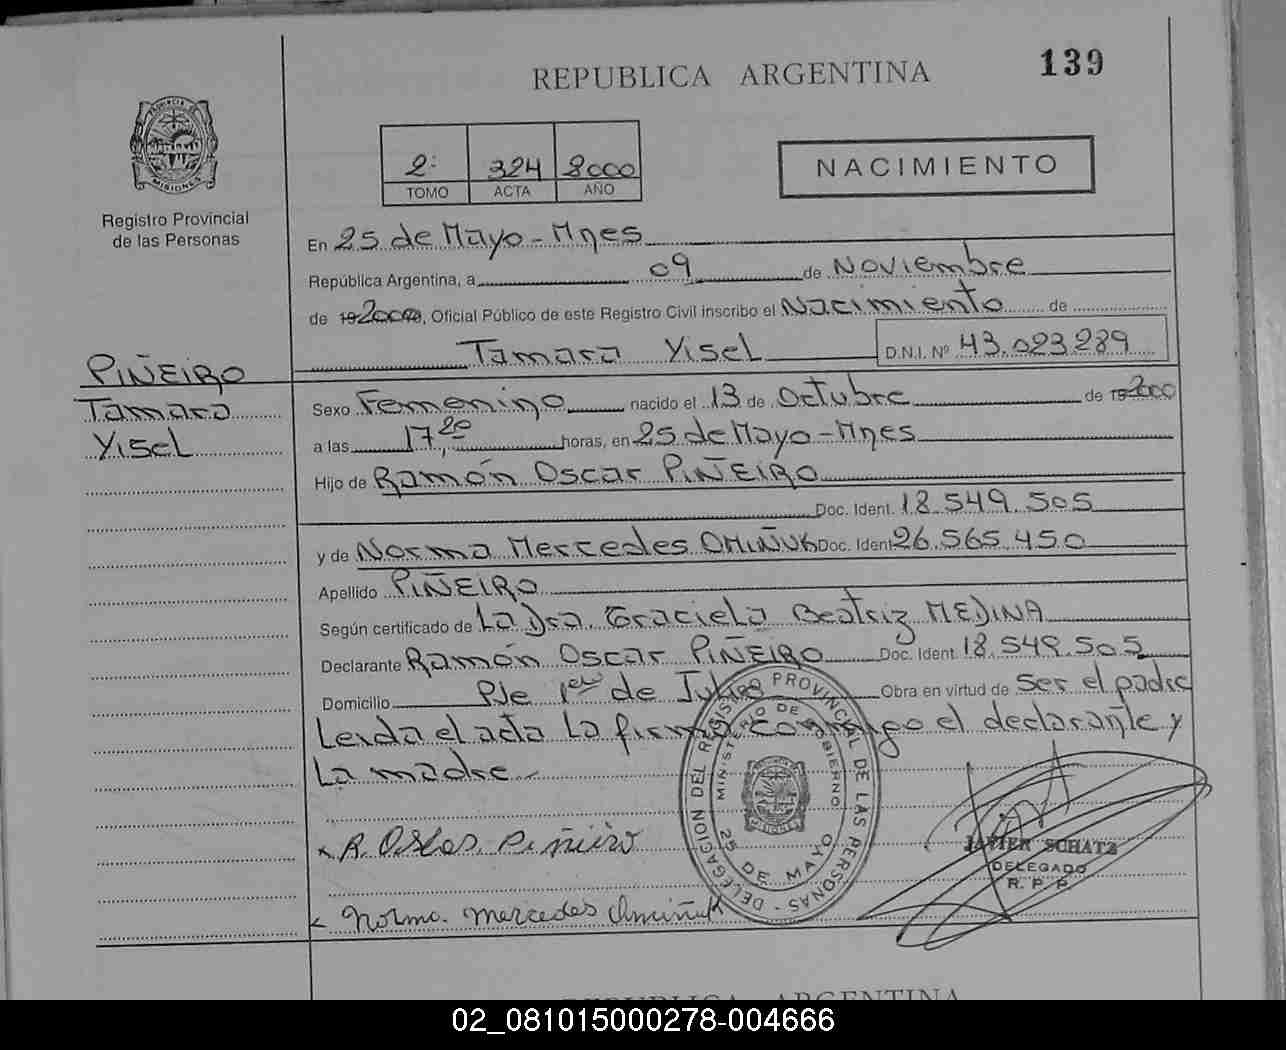 139
REPUBLICA ARGENTINA
PROVINCIA DE
MISIONES
Registro Provincial
de las Personas
2: 324 2000
TOMO ACTA AÑO
NACIMIENTO
En 25 de Mayo - Mnes
República Argentina, a 09 de Noviembre
de 2000, Oficial Público de este Registro Civil inscribo el Nacimiento de
Tamara Yisel D.N.I. Nº 43.023.289
PIÑEIRO
Tamara
Yisel
Sexo Femenino nacido el 13 de Octubre de 2000
a las 17,20 horas, en 25 de Mayo - Mnes
Hijo de Ramón Oscar PIÑEIRO
Doc. Ident. 18.549.505
y de Norma Mercedes OMIÑUK Doc. Ident 26.565.450
Apellido PIÑEIRO
Según certificado de La Dra. Graciela Beatriz MEDINA
Declarante Ramón Oscar PIÑEIRO Doc. Ident. 18.549.505
Domicilio Pje 1er de Julio Obra en virtud de Ser el padre
Leída el acta la firma conmigo el declarante y
La madre
DELEGACION DEL REGISTRO PROVINCIAL DE LAS PERSONAS -
MINISTERIO DE GOBIERNO
MISIONES
25 DE MAYO
R. Oscar Piñeiro
JAVIER SCHATZ
DELEGADO
R. P. P.
Norma Mercedes Omiñuk
REPUBLICA ARGENTINA
02_081015000278-004666